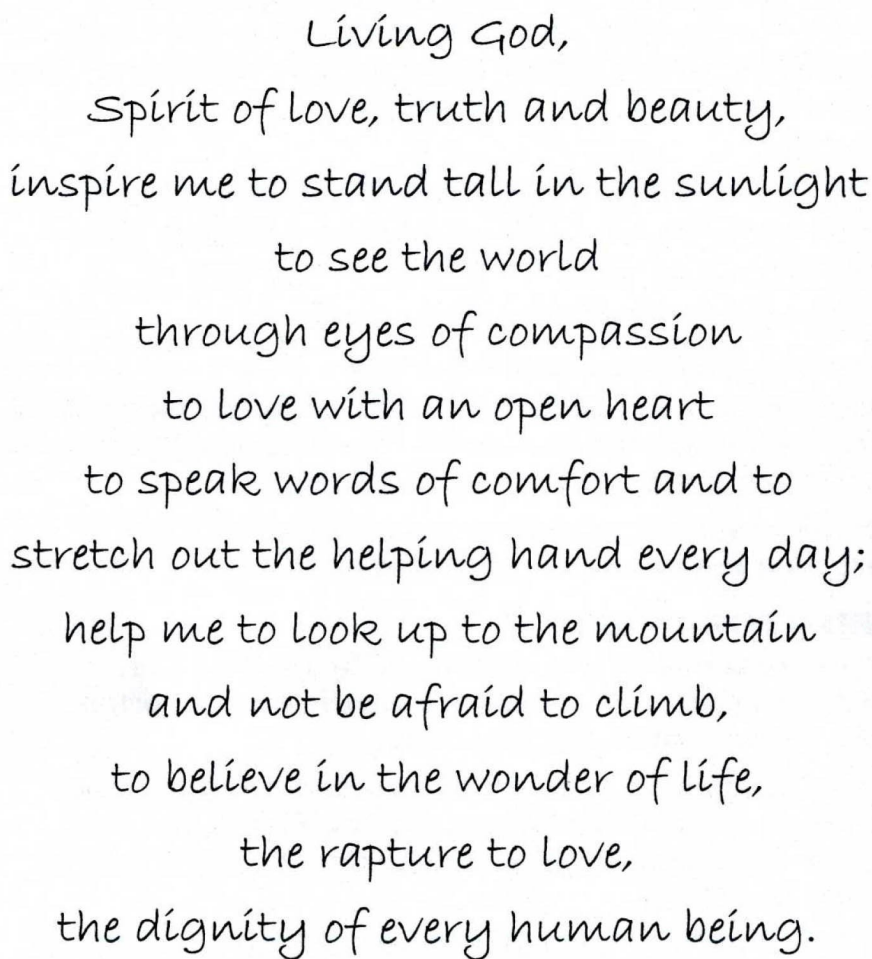 Living God,
Spirit of love, truth and beauty,
inspire me to stand tall in the sunlight
to see the world
through eyes of compassion
to love with an open heart
to speak words of comfort and to
stretch out the helping hand every day;
help me to look up to the mountain
and not be afraid to climb,
to believe in the wonder of life,
the rapture to love,
the dignity of every human being.